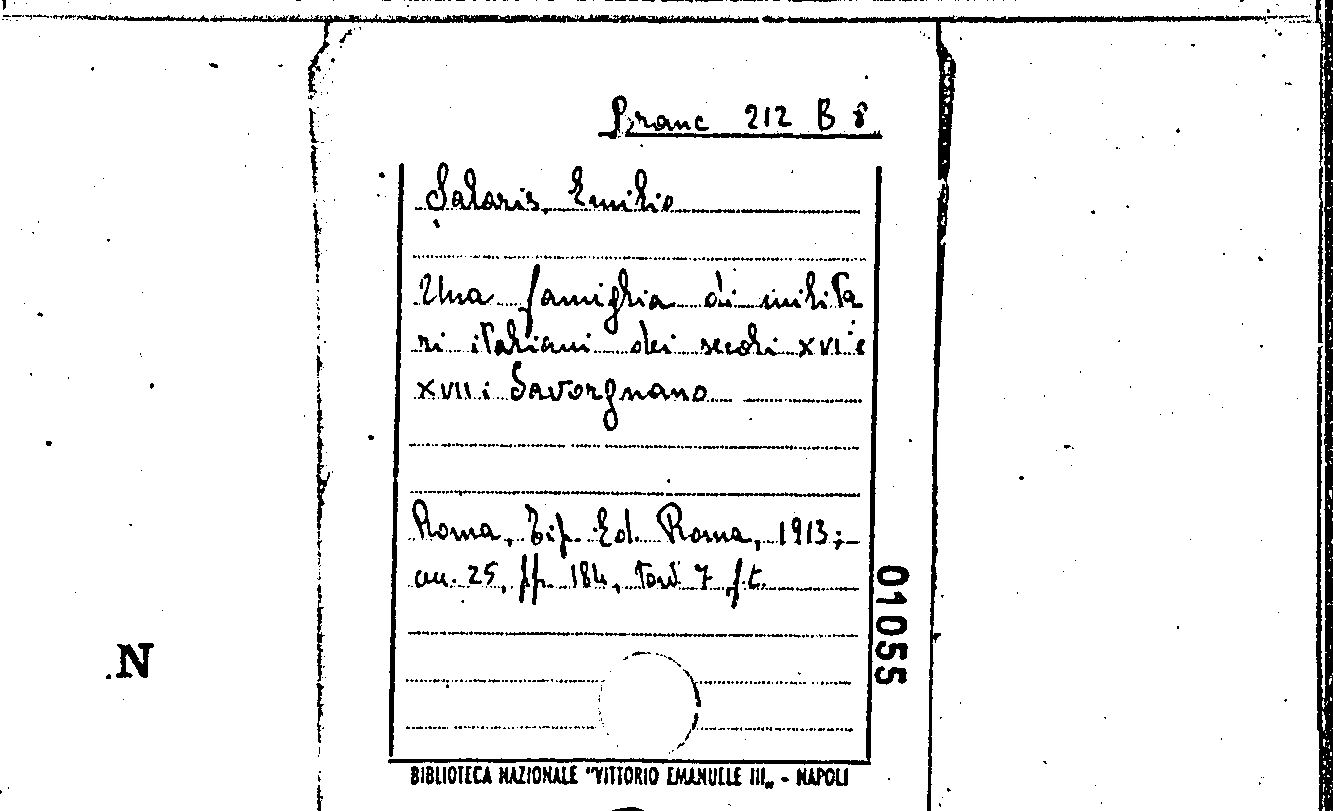 Branc 212 B 8
Salaris Emilio
Una famiglia di milita
ri italiani dei secoli XVI e
XVII: i Savorgnano
Roma, Tip. Ed. Roma, 1913;
cm. 25, pp. 184, tav. 7 f.t.
01055
N
BIBLIOTECA NAZIONALE "VITTORIO EMANUELE III„ - NAPOLI